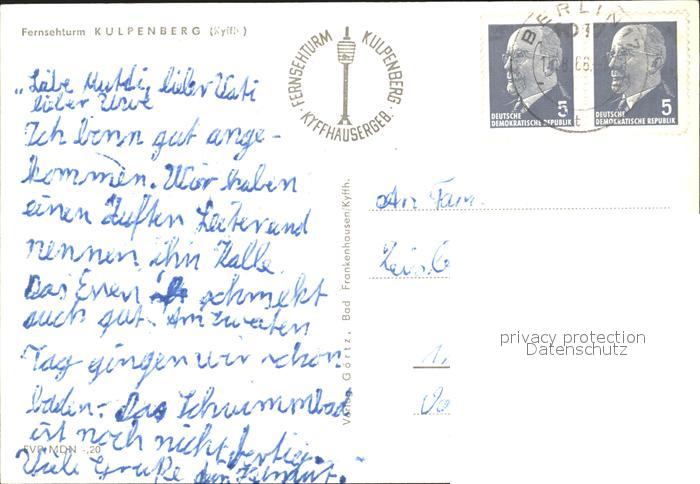 Fernsehturm KULPENBERG (Kyffh.)
FERNSEHTURM KULPENBERG
KYFFHÄUSERGEB.
BERLIN
DEUTSCHE
DEMOKRATISCHE REPUBLIK 5
DEUTSCHE
DEMOKRATISCHE REPUBLIK 5
„Liebe Mutti, lieber Vati
lieber Uwe
Ich binn gut ange-
kommen. Wir haben
einen duften Leiter und
nennen ihn Kalle.
Das Essen schmekt
auch gut. Am zweiten
Tag gingen wir schon
baden. Das Schwimmbad
ist noch nicht fertig.
Viele Grüße
EVP MDN -,20
Verlag Görtz, Bad Frankenhausen/Kyffh.
An Fam.
privacy protection
Datenschutz